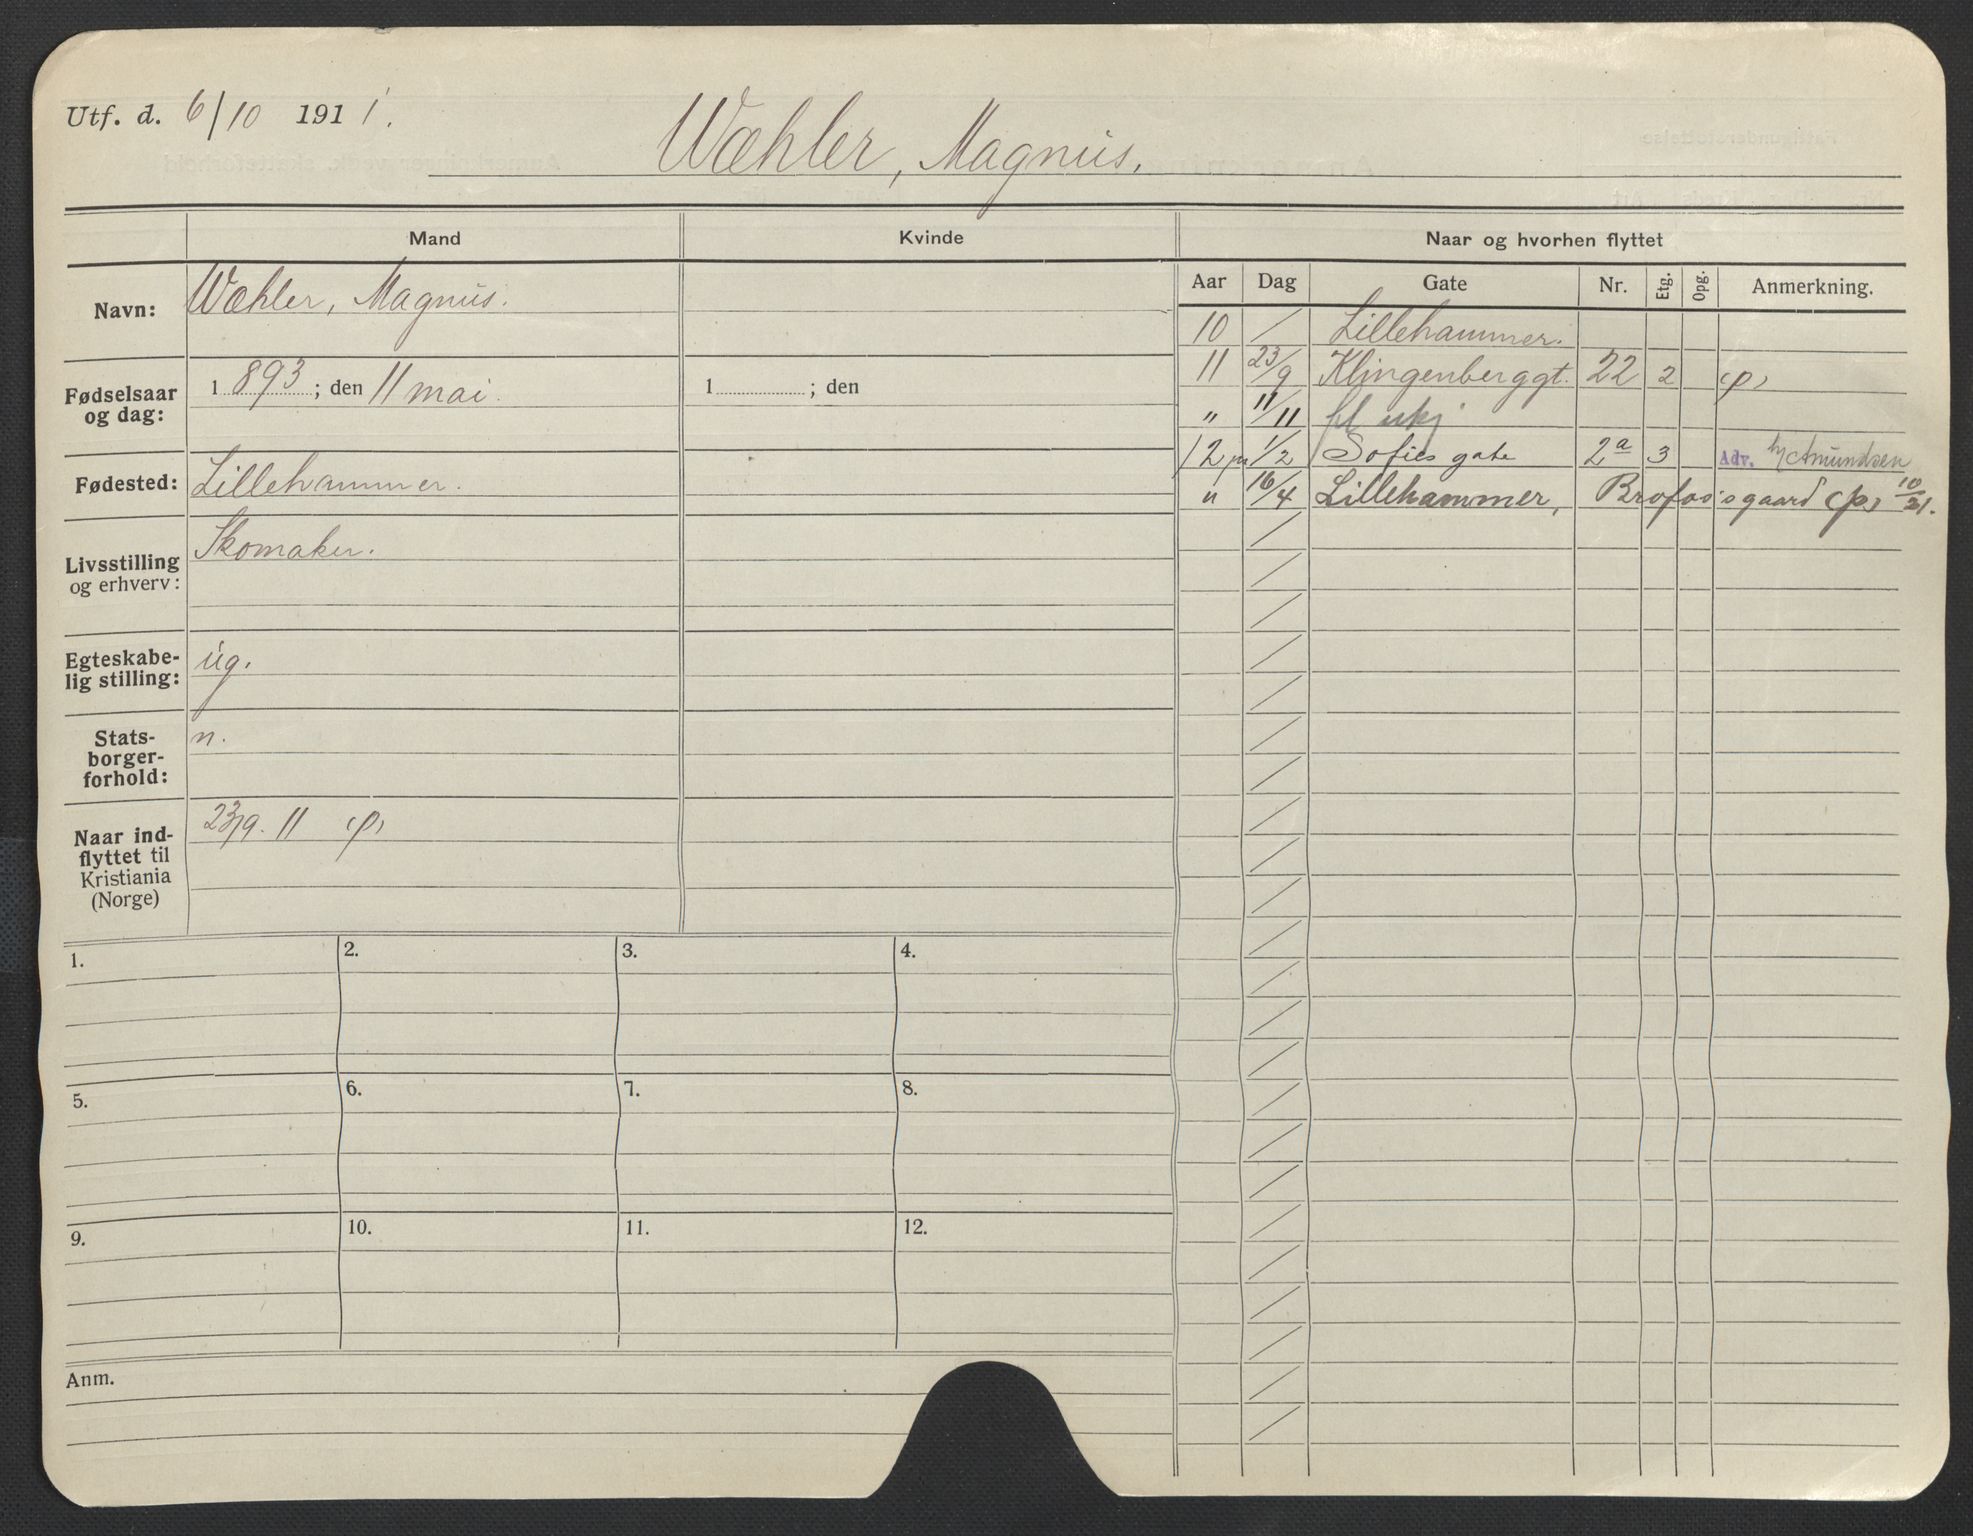 Utf. d. 6/10 1911.
Wæhler, Magnus.
Mand
Kvinde
Naar og hvorhen flyttet
Navn: Wæhler, Magnus.
Fødselsaar og dag: 1893; den 11 mai. 1 ; den
Fødested: Lillehammer.
Livsstilling og erhverv: Skomaker.
Egteskabelig stilling: ug.
Statsborgerforhold: n.
Naar indflyttet til Kristiania (Norge) 23/9. 11 (p)
1. 2. 3. 4.
5. 6. 7. 8.
9. 10. 11. 12.
Anm.
Aar Dag Gate Nr. Etg. Opg. Anmerkning.
10 / Lillehammer.
11 23/9 Klingenberggt. 22 2 (p)
" 11/11 fl ukj
12 1/2 Sofies gate 2a 3 Adv. Amundsen
" 16/4 Lillehammer, Brofos's gaard (p) 10/21.